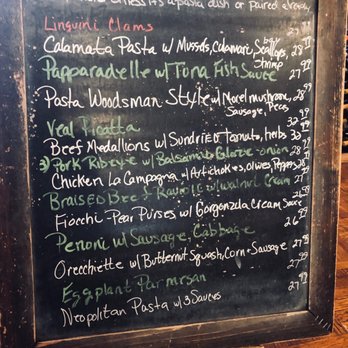 a pasta dish or paired already
Linguini Clams
Calamata Pasta w/ Mussels, Calamari, bay Scallops, 28.99
Shrimp
Papparadelle w/ Tuna Fish Sauce 27.99
Pasta Woodsman Style w/ Morel mushroom, 28.99
Sausage, Peas
Veal Picatta
Beef Medallions w/ Sundried Tomato, herbs 30
Pork Ribeye w/ Balsamic Glaze-onion 28
Chicken La Campagna w/ Artichokes, olives, Peppers
Braised Beef Ravioli w/ walnut Cream 27
Fiocchi Pear Purses w/ Gorgonzola Cream Sauce
Penoni w/ Sausage, Cabbage 26.99
Orecchiette w/ Butternut Squash, Corn + Sausage 27.99
Eggplant Parmesan
Neopolitan Pasta w/ 3 Sauces 27.99